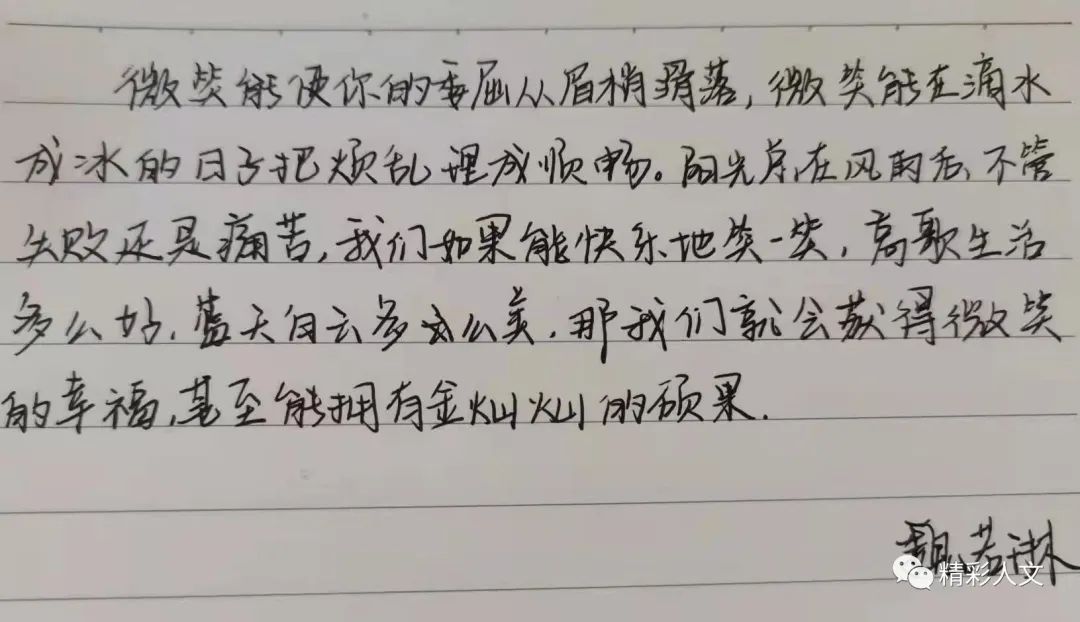 微笑能使你的委屈从眉梢滑落,微笑能在滴水
成冰的日子把烦乱理成顺畅。阳光总在风雨后,不管
失败还是痛苦,我们如果能快乐地笑一笑,高歌生活
多么好,蓝天白云多么美,那我们就会获得微笑
的幸福,甚至能拥有金灿灿的硕果.
魏若琳
精彩人文